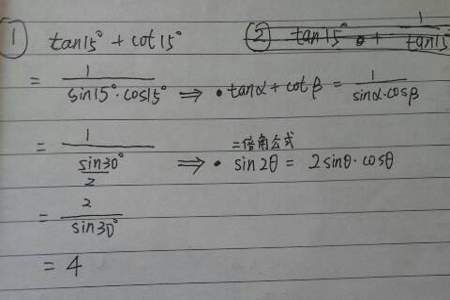 ① tan15° + cot15°
② tan15° + 1/tan15
= 1/(sin15°·cos15°) ⇒ • tanα + cotβ = 1/(sinα·cosβ)
= 1/(sin30°/2) ⇒ • sin2θ = 2sinθ·cosθ
二倍角公式
= 2/sin30°
= 4